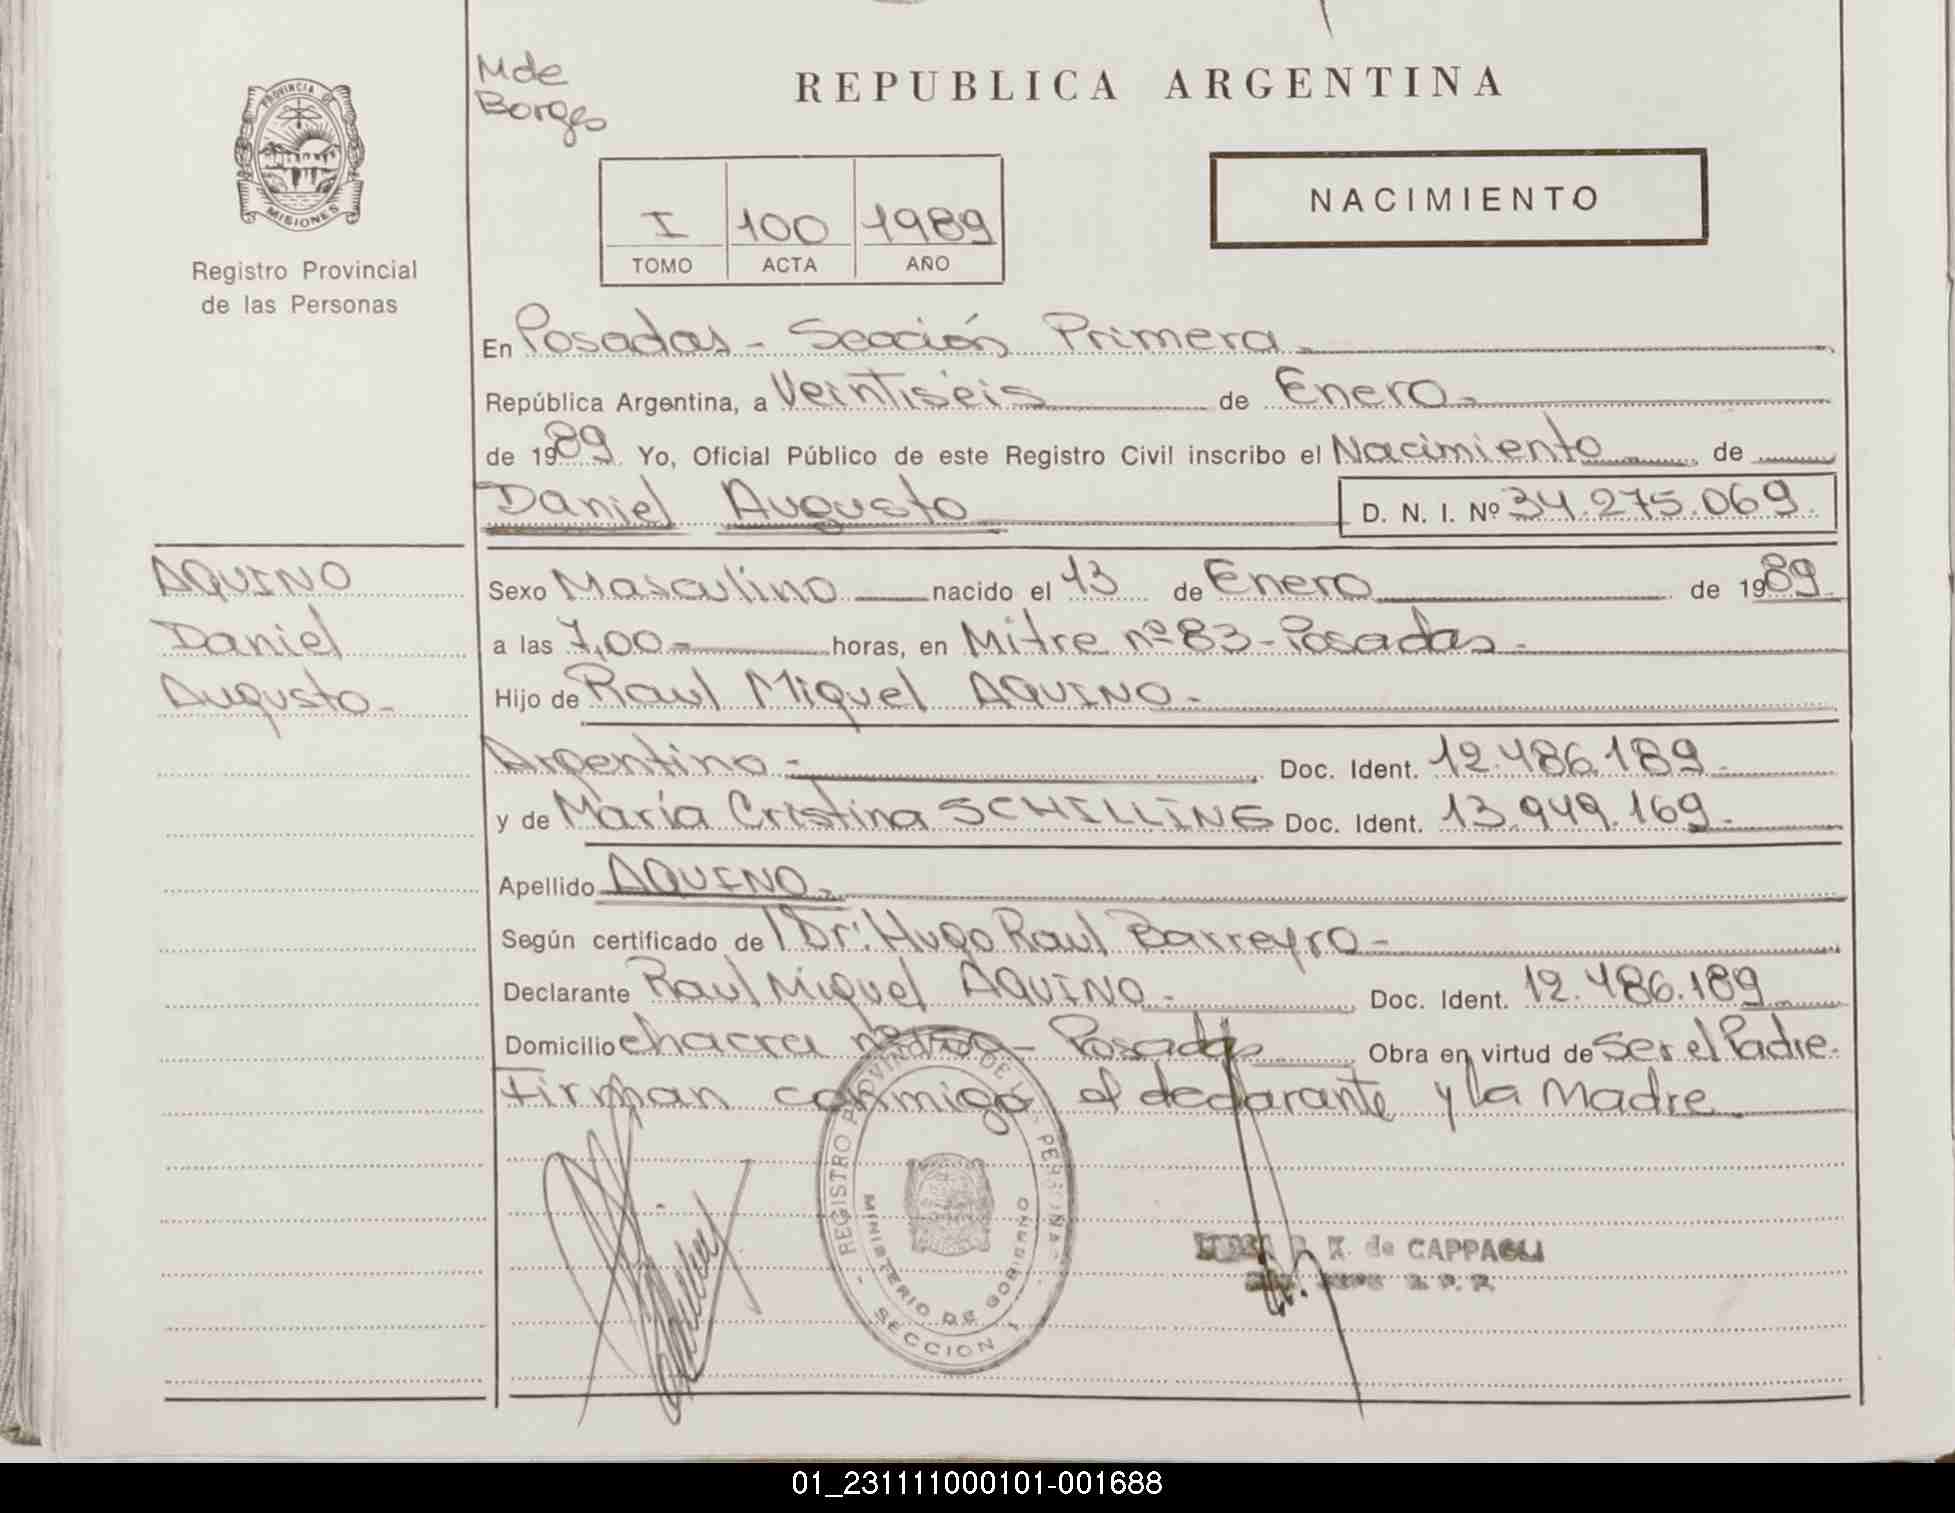 Mde
Borges
REPUBLICA ARGENTINA
PROVINCIA DE
MISIONES
Registro Provincial
de las Personas
I 100 1989
TOMO ACTA AÑO
NACIMIENTO
En Posadas - Sección Primera.
República Argentina, a Veintiséis de Enero.
de 1989. Yo, Oficial Público de este Registro Civil inscribo el Nacimiento de
Daniel Augusto D. N. I. Nº 34.275.069.
AQUINO
Daniel
Augusto-
Sexo Masculino nacido el 13 de Enero de 1989.
a las 7,00- horas, en Mitre nº 83-Posadas-
Hijo de Raul Miguel AQUINO.
Argentino- Doc. Ident. 12.486.189
y de María Cristina SCHILLING Doc. Ident. 13.949.169.
Apellido AQUINO.
Según certificado de Dr. Hugo Raul Barreyro-
Declarante Raul Miguel AQUINO. Doc. Ident. 12.486.189
Domicilio chacra Posadas Obra en virtud de Ser el Padre.
Firman conmigo el declarante y la Madre
REGISTRO PROVINCIAL DE LAS PERSONAS
MINISTERIO DE GOBIERNO
SECCION 1
K. de CAPPAGLI
01_231111000101-001688